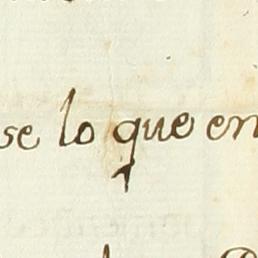 se lo que en